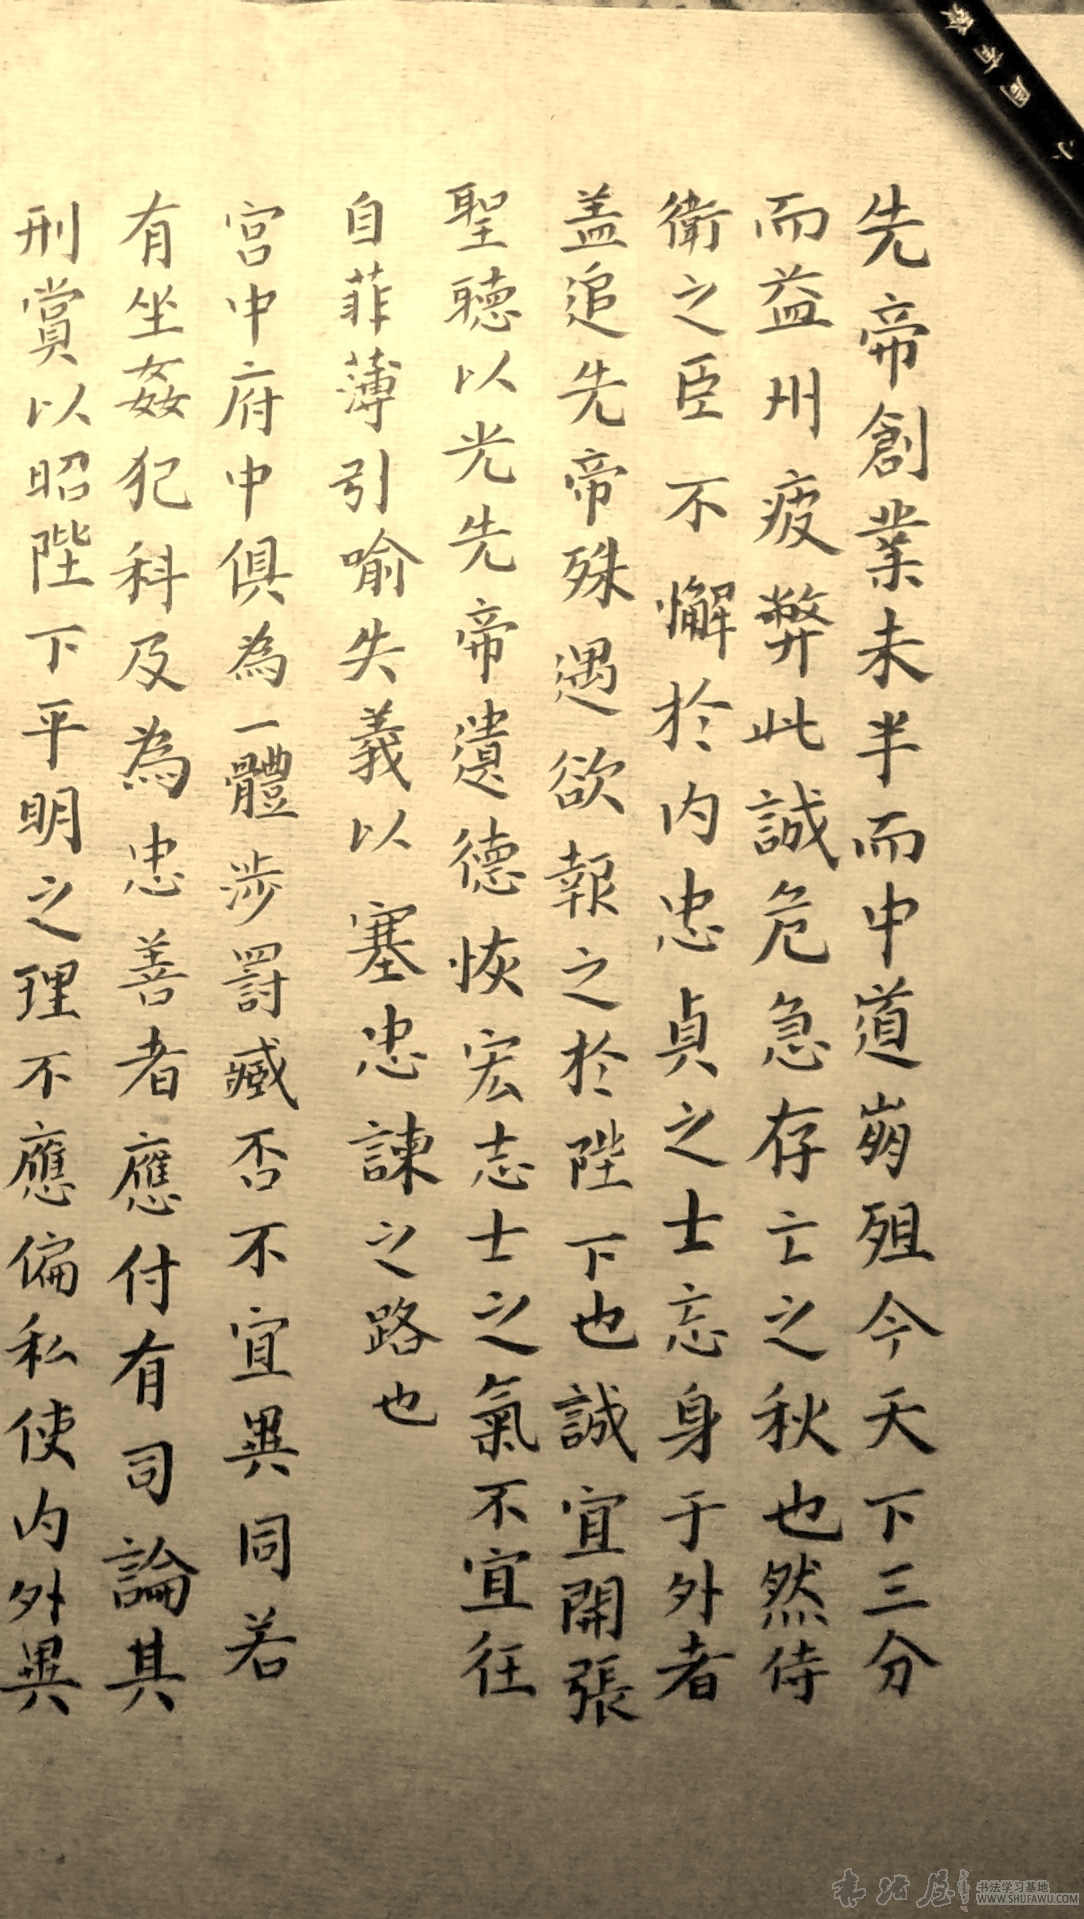 先帝創業未半而中道崩殂今天下三分
而益州疲弊此誠危急存亡之秋也然侍
衛之臣不懈於内忠貞之士忘身于外者
盖追先帝殊遇欲報之於陛下也誠宜開張
聖聴以光先帝遺德恢宏志士之氣不宜任
自菲薄引喻失義以塞忠諫之路也
宫中府中俱為一體涉罸臧否不宜異同若
有坐姦犯科及為忠善者應付有司論其
刑賞以昭陛下平明之理不應偏私使内外異
书法学习基地
WWW.SHUFAWU.COM